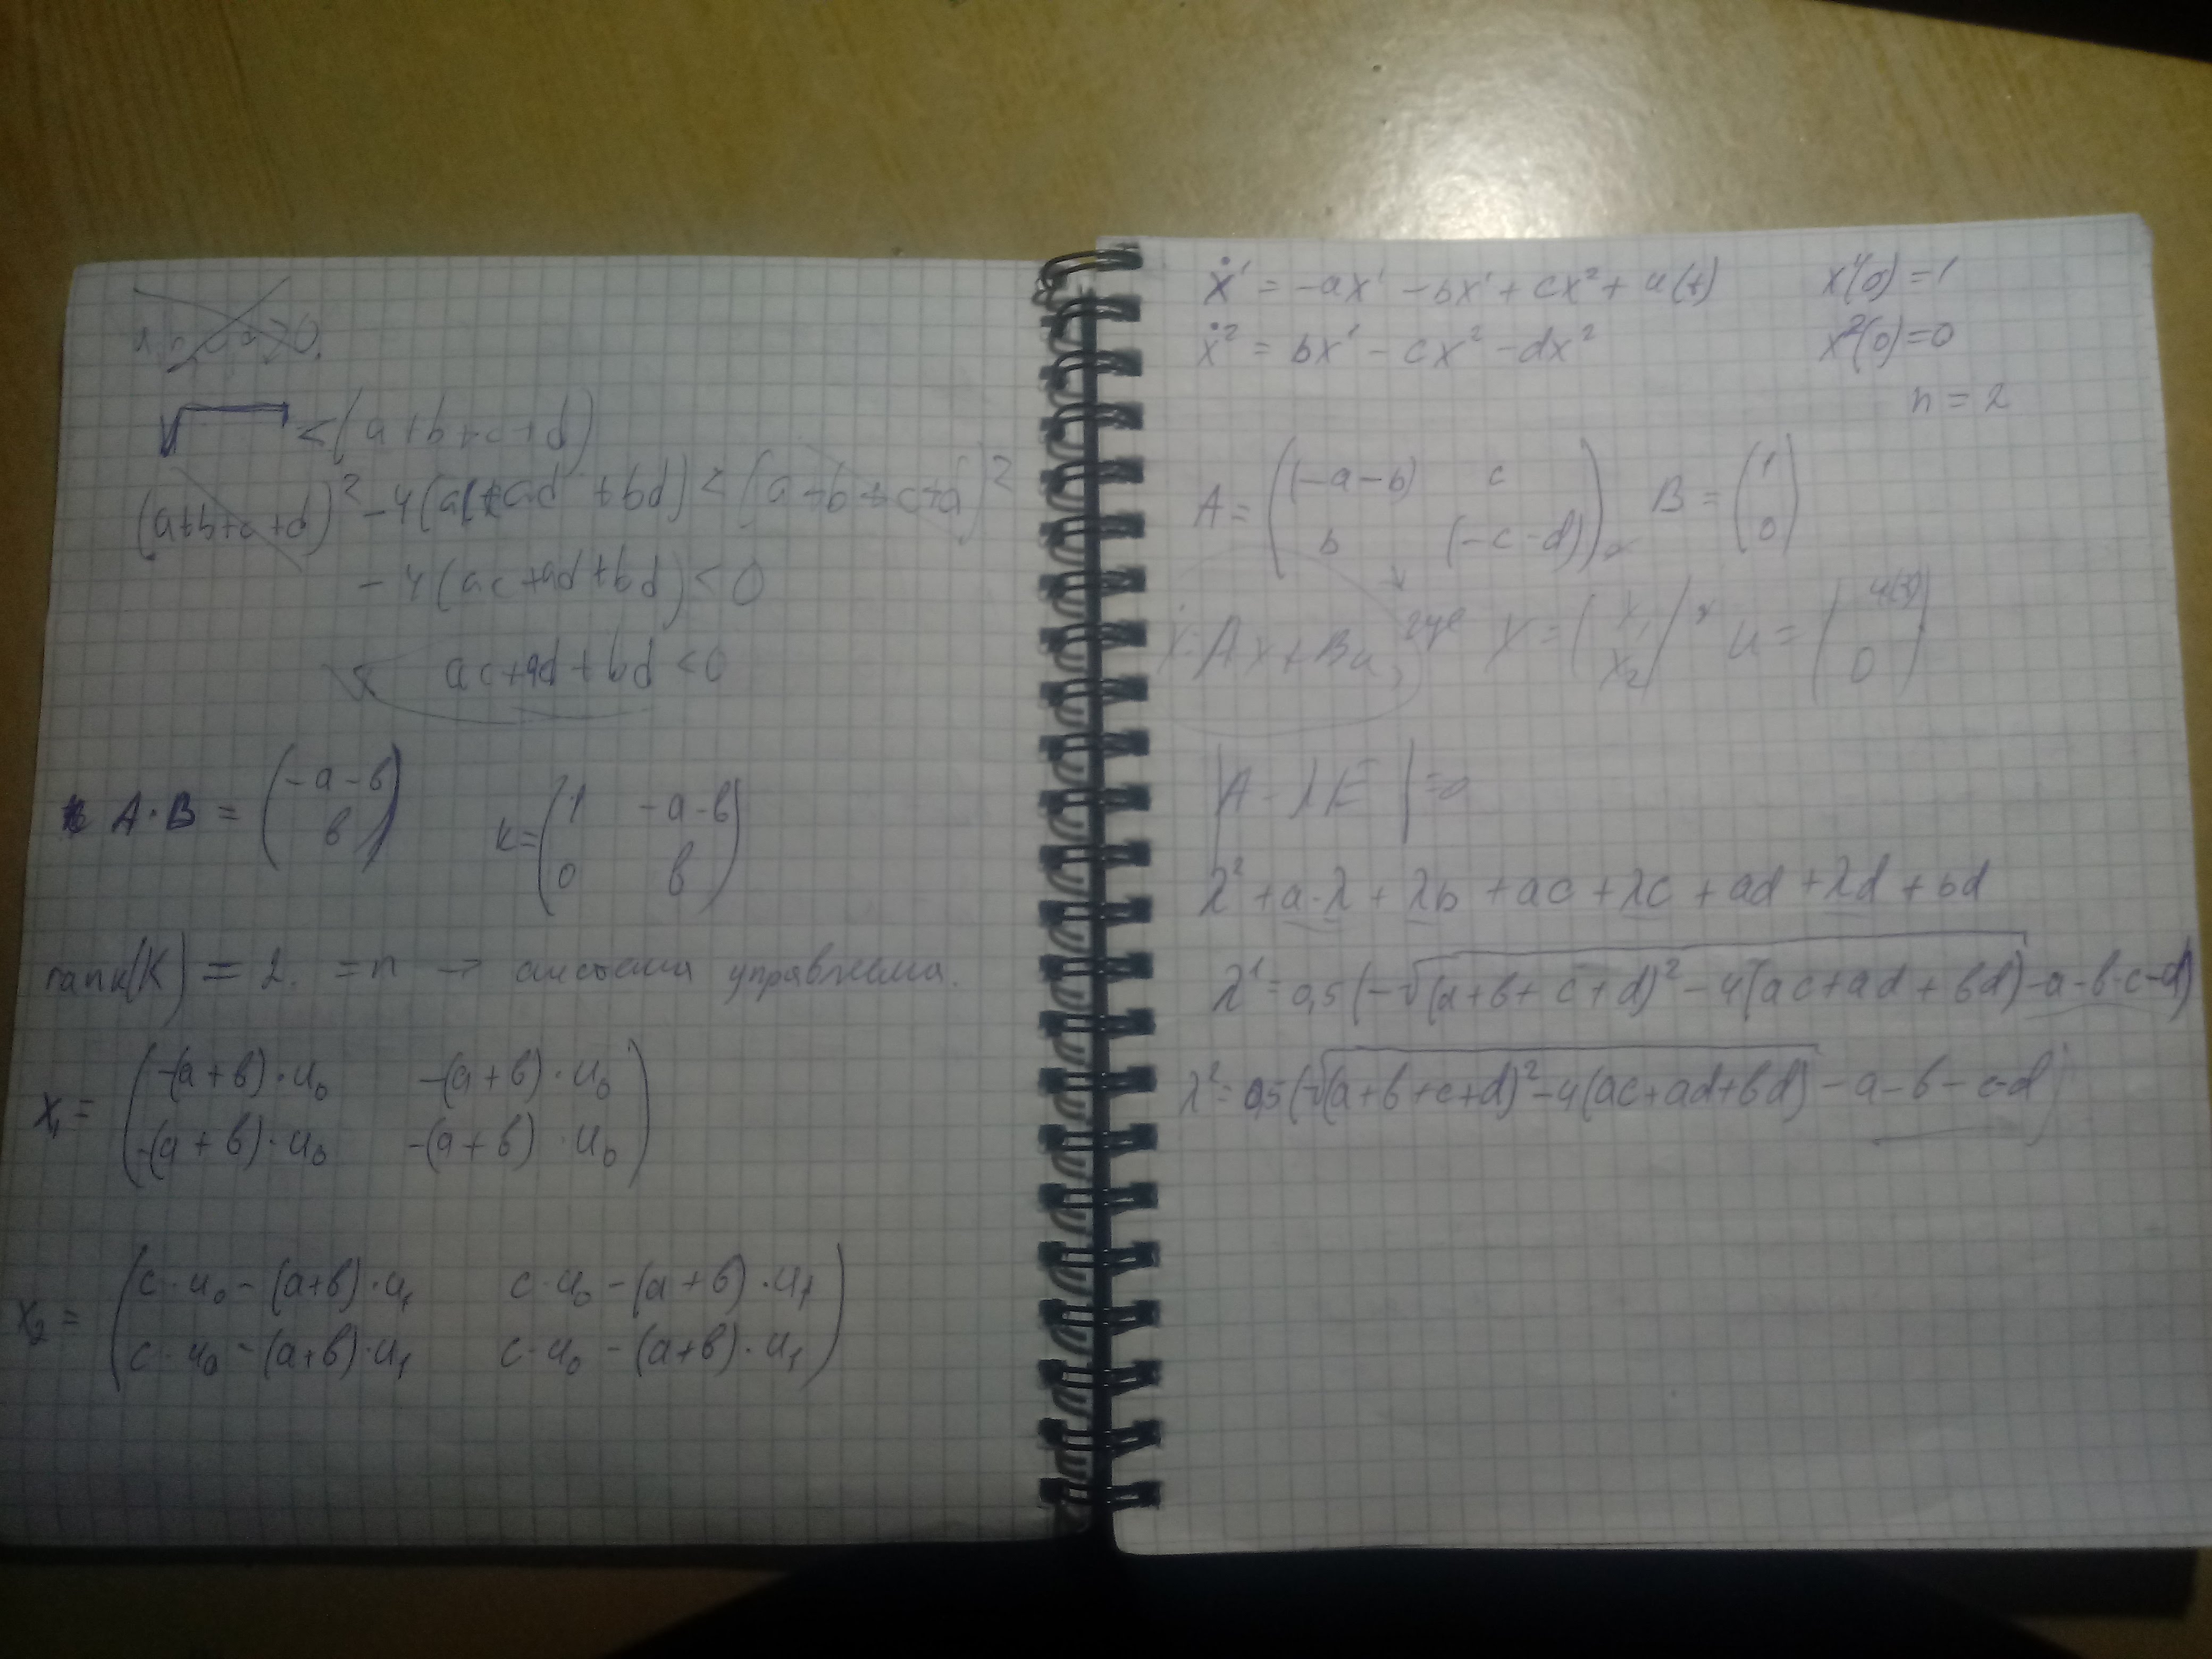 √ < (a+b+c+d)
(a+b+c+d)² - 4(ac+ad+bd) < (a+b+c+d)²
- 4(ac+ad+bd) < 0
ac+ad+bd < 0
A·B = (-a-b; b) K = (1 -a-b; 0 b)
rank(K) = 2. = n → система управляема.
X₁ = (-(a+b)·u₀ -(a+b)·u₀; -(a+b)·u₀ -(a+b)·u₀)
X₂ = (c·u₀-(a+b)·u₁ c·u₀-(a+b)·u₁; c·u₀-(a+b)·u₁ c·u₀-(a+b)·u₁)
ẋ¹ = -ax¹ - bx¹ + cx² + u(t) x¹(0) = 1
ẋ² = bx¹ - cx² - dx² x²(0) = 0
n = 2
A = ((-a-b) c; b (-c-d)), B = (1; 0)
ẋ = Ax + Bu, где x = (x₁; x₂), u = (u(t); 0)
|A - λE| = 0
λ² + a·λ + λb + ac + λc + ad + λd + bd
λ¹ = 0,5(-√((a+b+c+d)² - 4(ac+ad+bd)) -a-b-c-d)
λ² = 0,5(√((a+b+c+d)² - 4(ac+ad+bd)) - a-b-c-d)